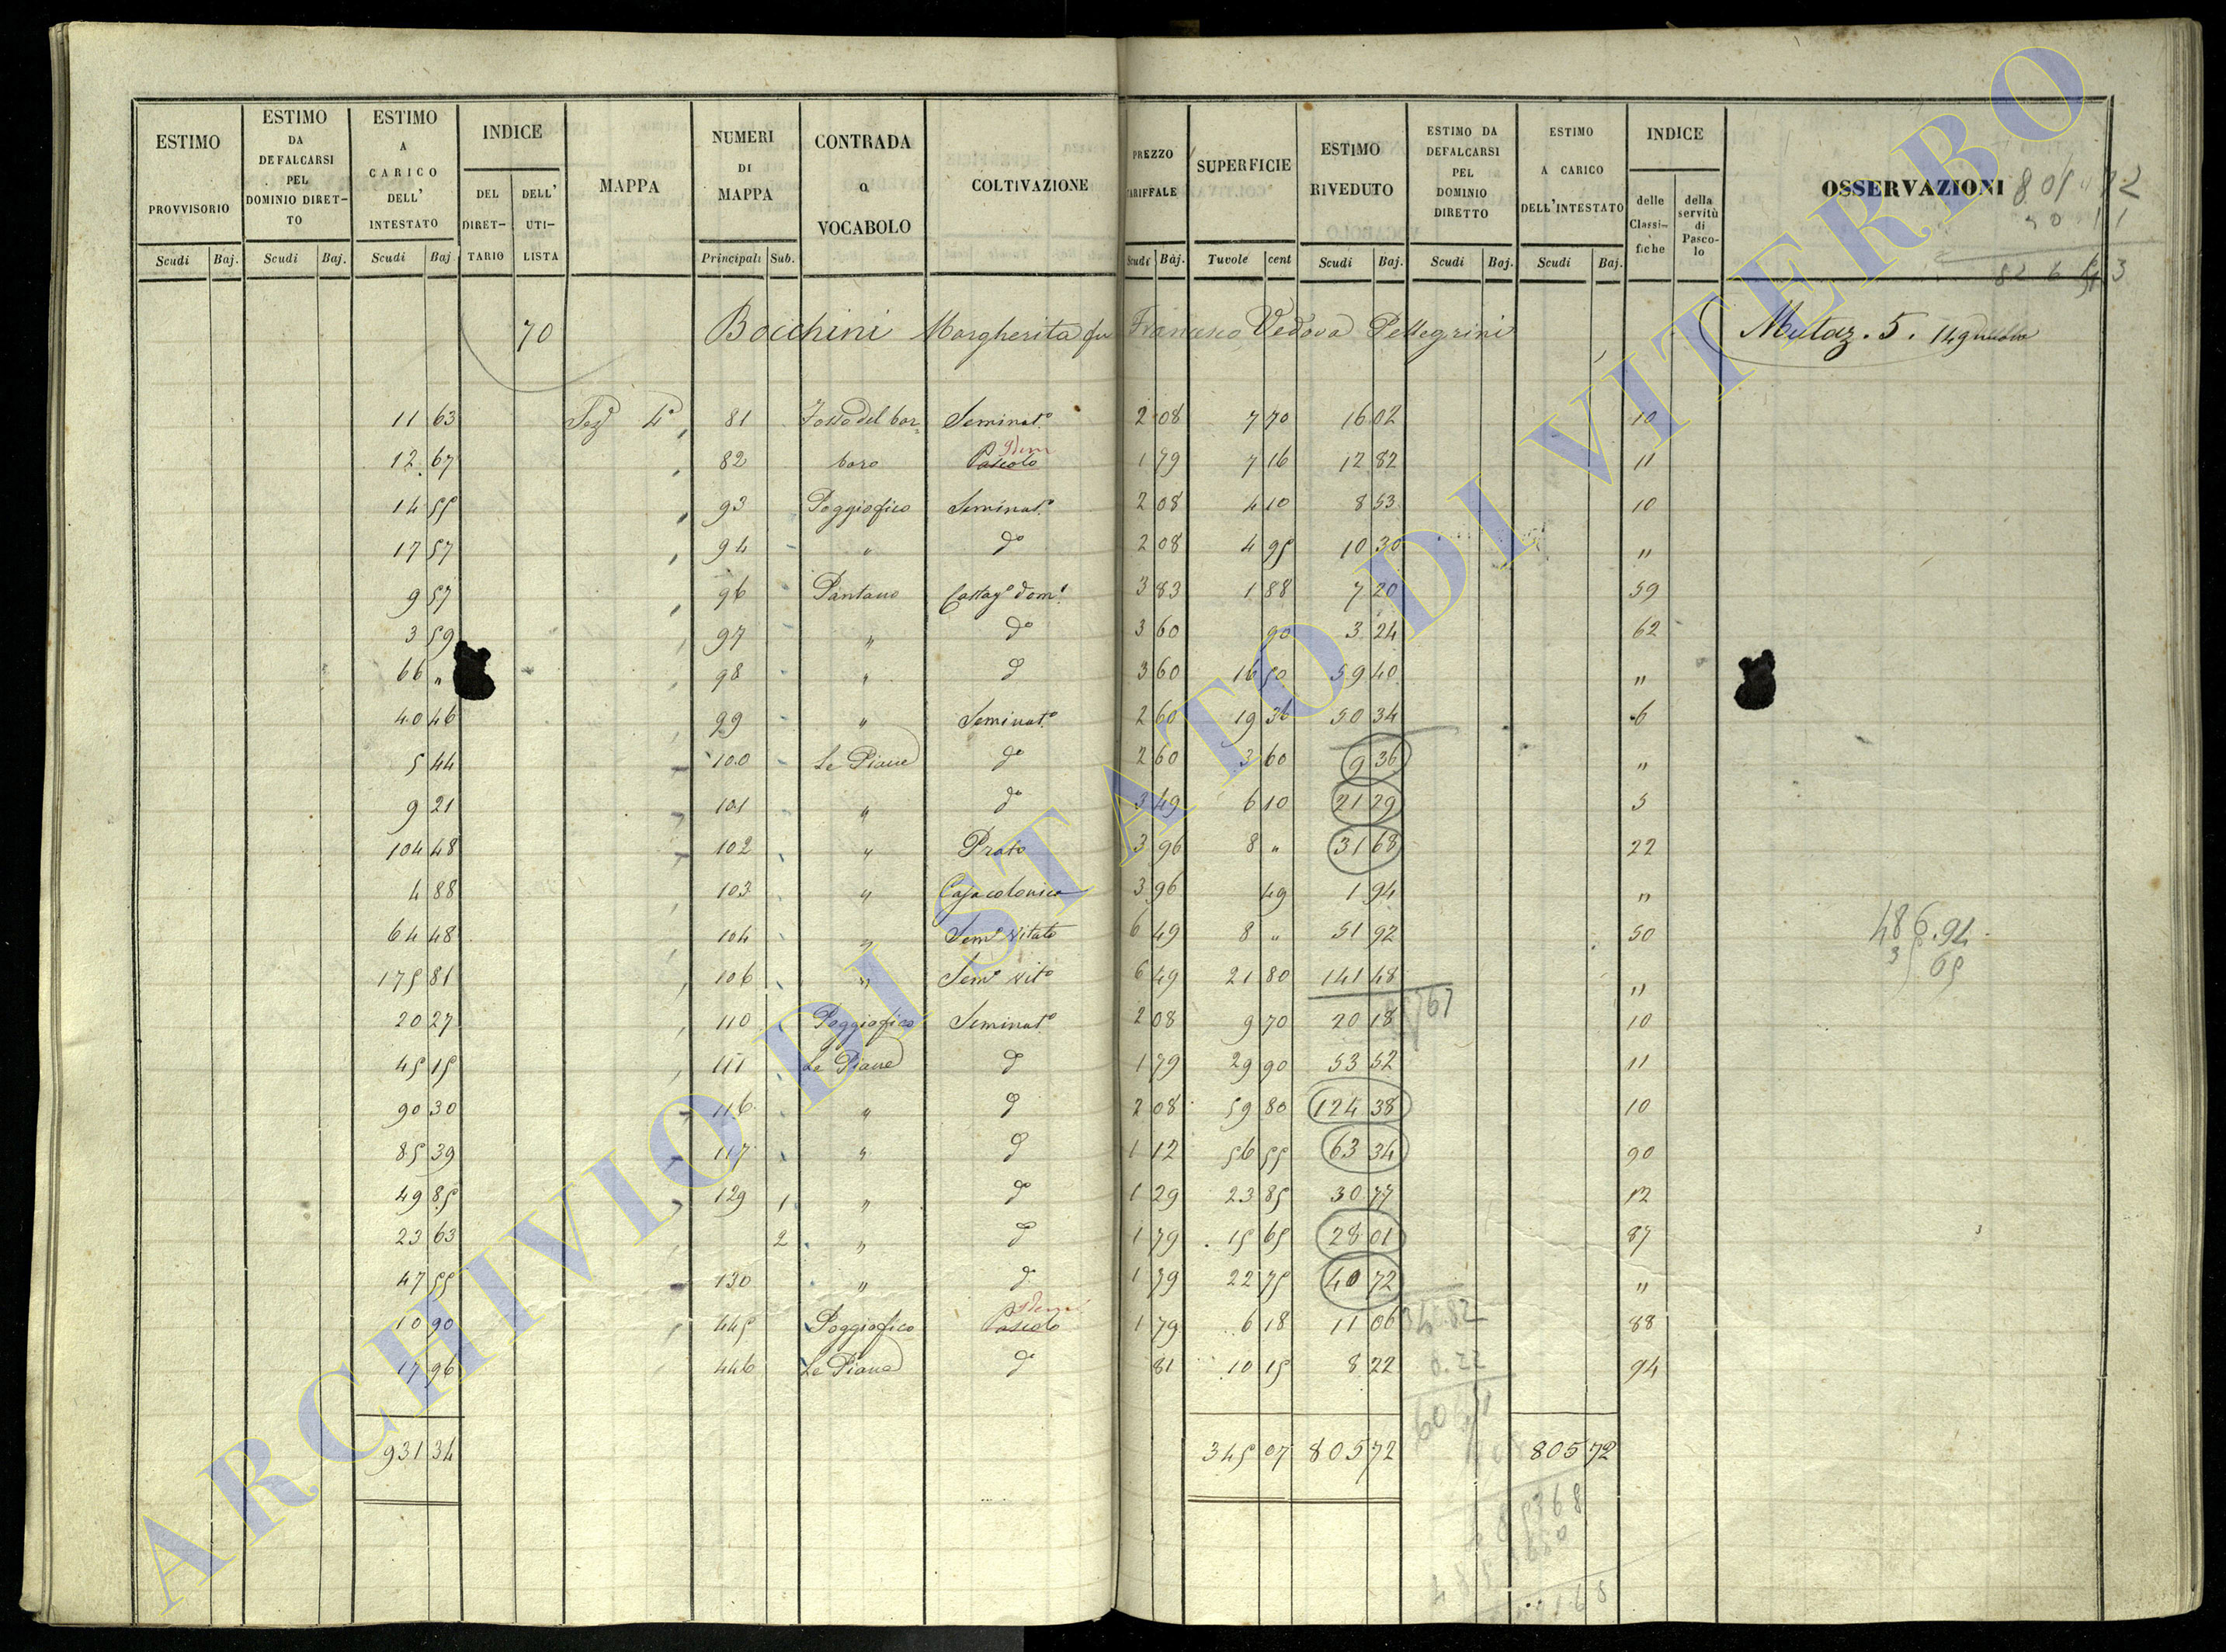 ESTIMO PROVVISORIO Scudi Baj.
ESTIMO DA DEFALCARSI PEL DOMINIO DIRET-TO Scudi Baj.
ESTIMO A CARICO DELL' INTESTATO Scudi Baj
INDICE DEL DIRET-TARIO DELL' UTI-LISTA
MAPPA
NUMERI DI MAPPA Principali Sub.
CONTRADA o VOCABOLO
COLTIVAZIONE
PREZZO TARIFFALE Scudi Baj.
SUPERFICIE Tuvole cent
ESTIMO RIVEDUTO Scudi Baj.
ESTIMO DA DEFALCARSI PEL DOMINIO DIRETTO Scudi Baj.
ESTIMO A CARICO DELL'INTESTATO Scudi Baj.
INDICE delle Classi-fiche della servitù di Pasco-lo
OSSERVAZIONI
70 Bocchini Margherita fu Francesco Vedova Pellegrini Mutaz. 5.
11 63 Sez.e 4a 81 Fosso del bor= Seminat.o 2 08 7 70 16 02 10
12 67 82 boro Pascolo 1 79 7 16 12 82 11
14 55 93 Poggiofico Seminat.o 2 08 4 10 8 53 10
17 57 94 " do 2 08 4 95 10 30 "
9 57 96 Pantano Castag.o dom.o 3 83 1 88 7 20 59
3 59 97 " do 3 60 90 3 24 62
66 " 98 " do 3 60 16 50 59 40 "
40 46 99 " Seminat.o 2 60 19 36 50 34 6
5 44 100 Le Piane do 2 60 3 60 9 36 "
9 21 101 " do 3 49 6 10 21 29 5
104 48 102 " Prato 3 96 8 " 31 68 22
4 88 103 " Casa colonica 3 96 49 1 94 "
64 48 104 " Sem.o vitato 6 49 8 " 51 92 50
175 81 106 " Sem.o vit.o 6 49 21 80 141 48 "
20 27 110 Poggiofico Seminat.o 2 08 9 70 20 18 10
45 15 111 Le Piane do 1 79 29 90 53 52 11
90 30 116 " do 2 08 59 80 124 38 10
85 39 117 " do 1 12 56 55 63 34 90
49 85 129 1 " do 1 29 23 85 30 77 12
23 63 2 " do 1 79 15 65 28 01 87
47 55 130 " do 1 79 22 75 40 72 "
10 90 445 Poggiofico Pascolo 1 79 6 18 11 06 88
17 96 446 Le Piane do 81 10 15 8 22 94
931 34 345 07 805 72 805 72
486.94
ARCHIVIO DI STATO DI VITERBO